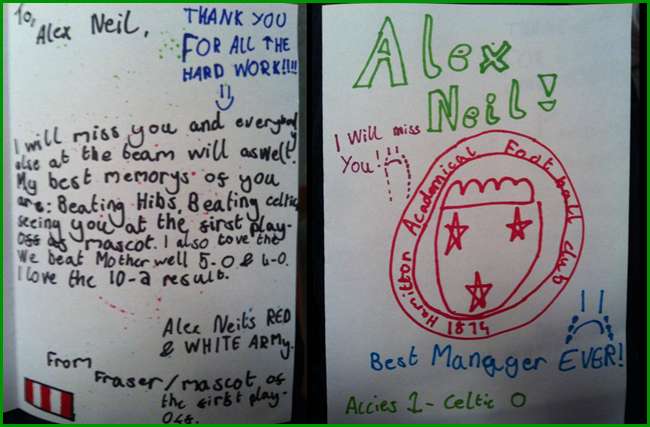 To,
Alex Neil,
THANK YOU
FOR ALL THE
HARD WORK!!!!
I will miss you and everybody
else at the team will aswell.
My best memorys of you
are: Beating Hibs, Beating celtic,
seeing you at the first play-
offs as mascot. I also love the
we beat Motherwell 5-0 & 4-0.
I love the 10-2 result.
Alex Neil's RED
& WHITE ARMY.
From
Fraser/mascot of
the first play-
offs.
Alex
Neil!
I Will miss
You!
Hamilton Academical Football club
1874
Best Manager EVER!
Accies 1 - Celtic 0